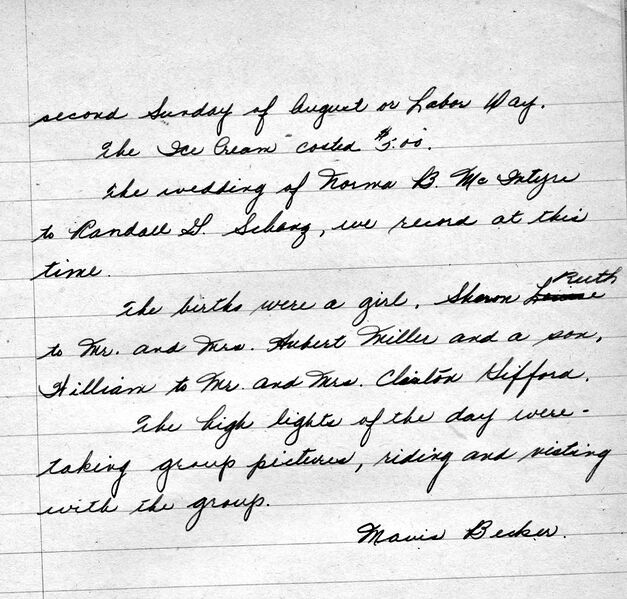 second Sunday of August or Labor Day.
The Ice Cream costed $5.00.
The wedding of Norma B. McIntyre
to Randall G. Schanz, we record at this
time.
The births were a girl, Sharon Ruth
to Mr. and Mrs. Hubert Miller and a son,
William to Mr. and Mrs. Clinton Gifford.
The high lights of the day were -
taking group pictures, riding and visting
with the group.
Mavis Becker.